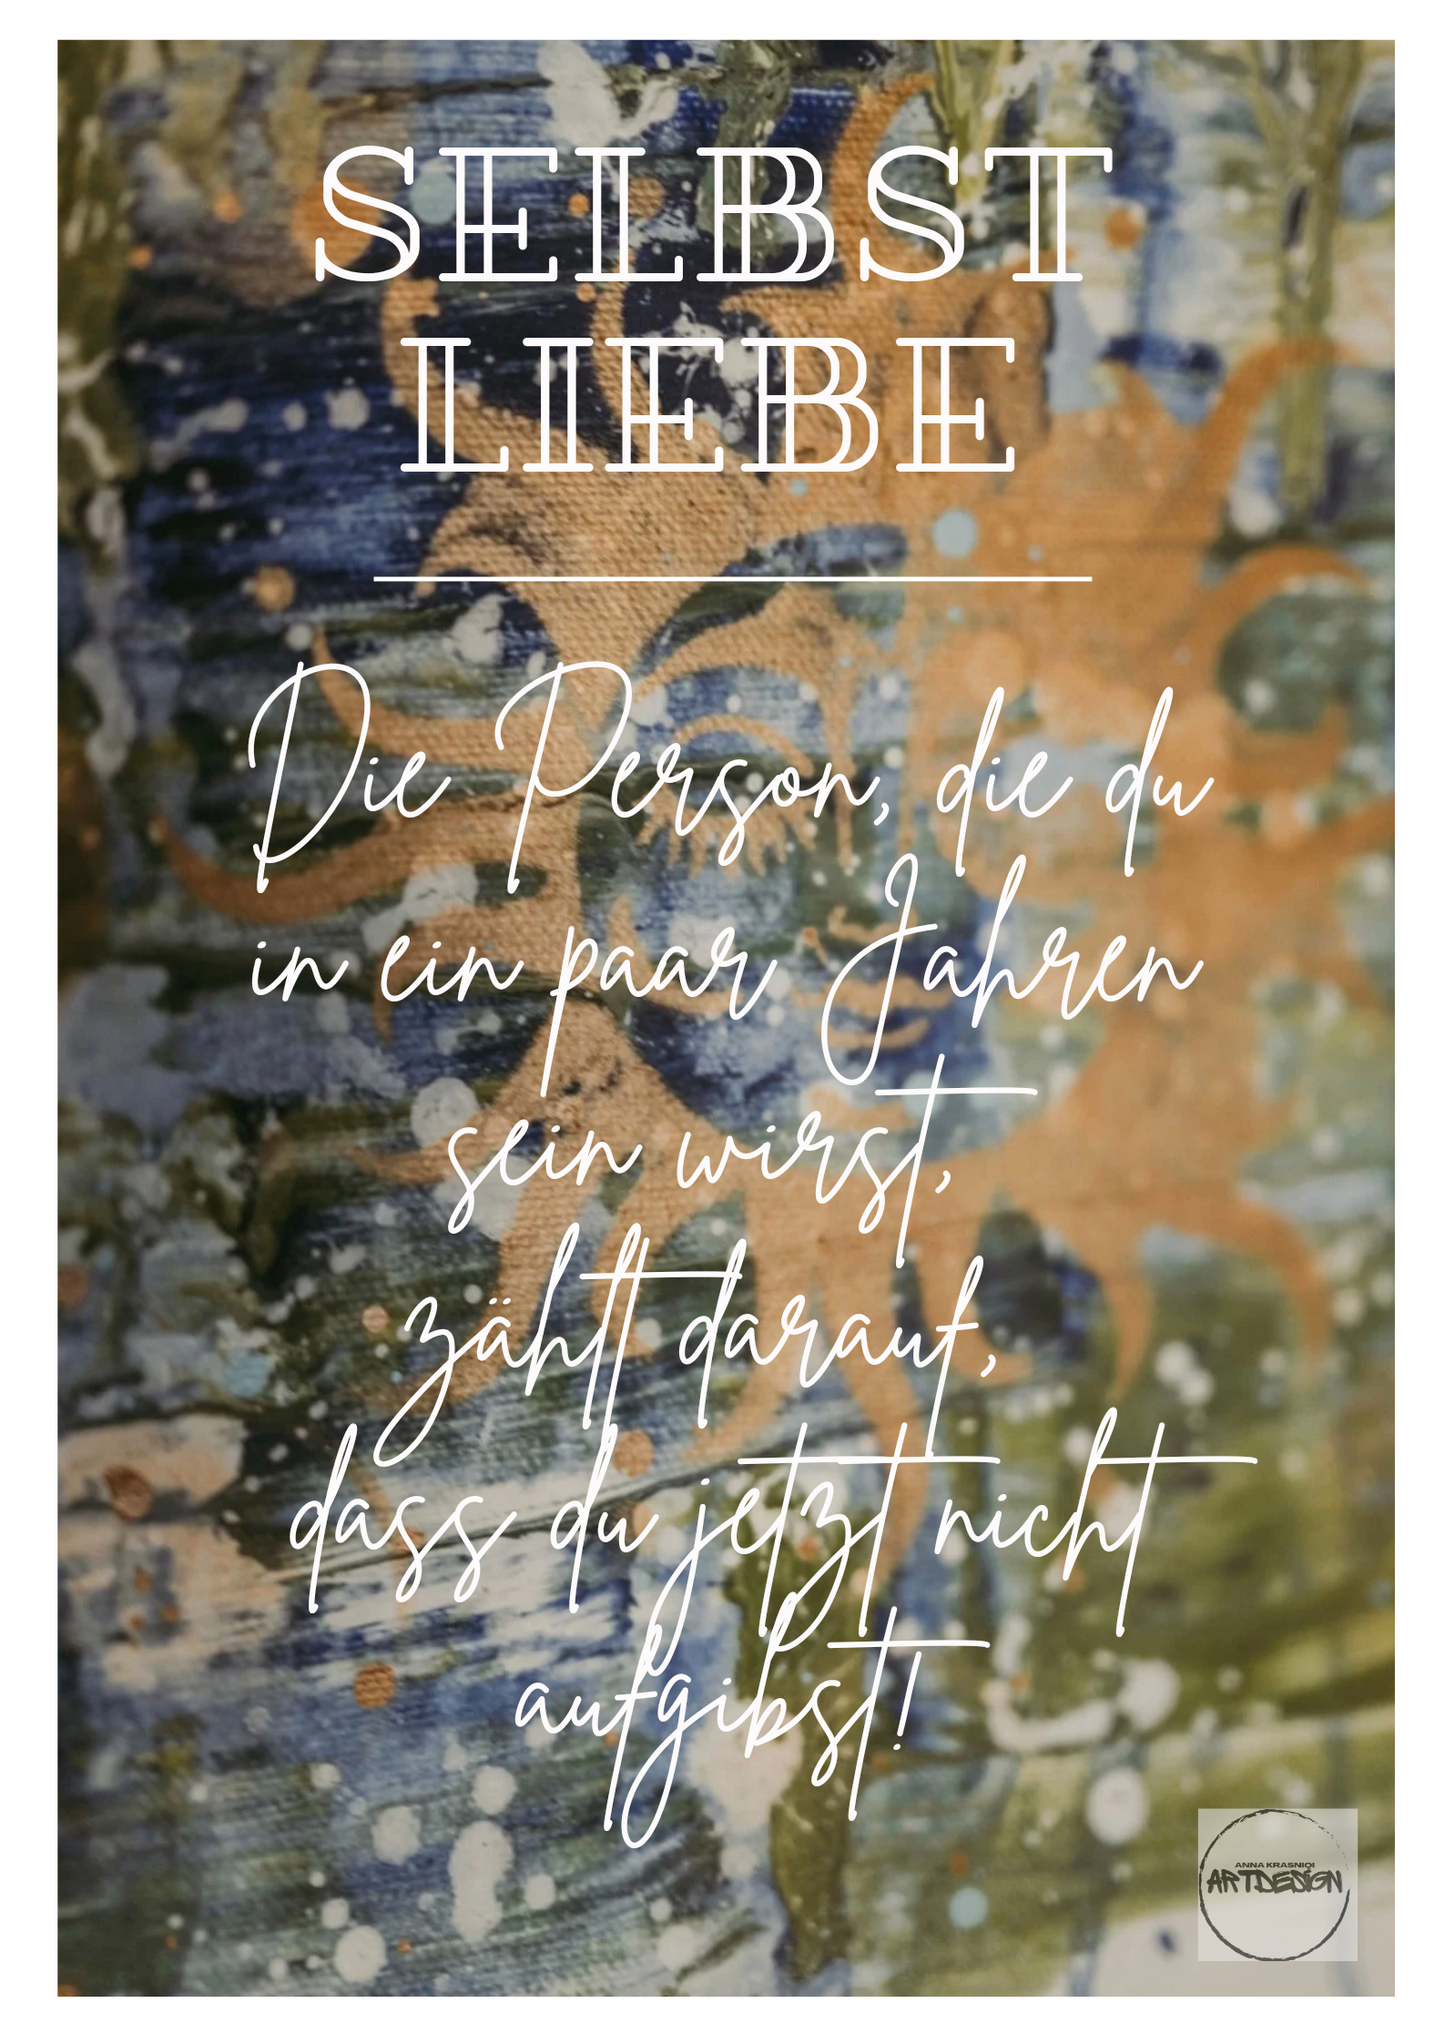 SELBST
LIEBE
Die Person, die du
in ein paar Jahren
sein wirst,
zählt darauf,
dass du jetzt nicht
aufgibst!
ANNA KRASNIQI
ARTDESIGN